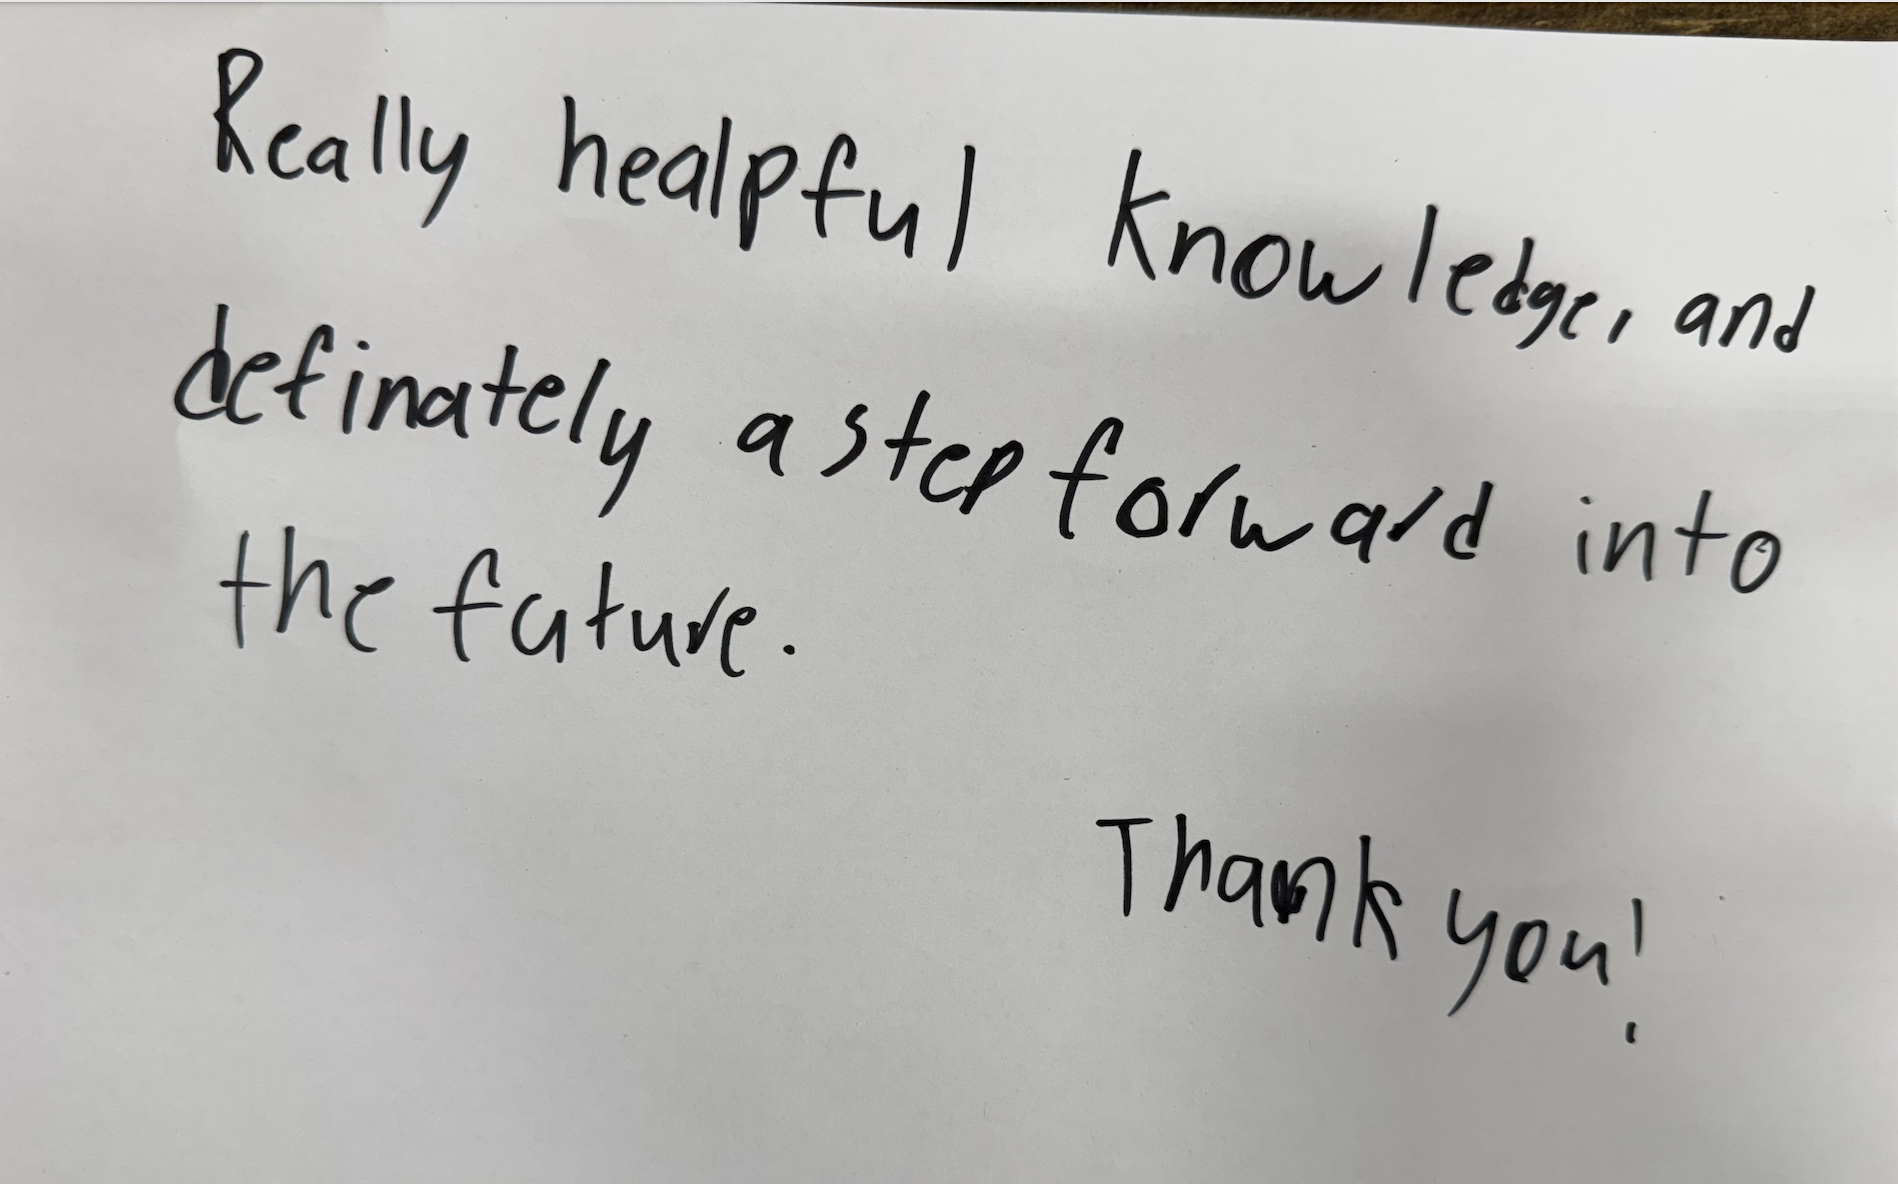 Really healpful knowledge, and
definately a step forward into
the future.
Thank you!